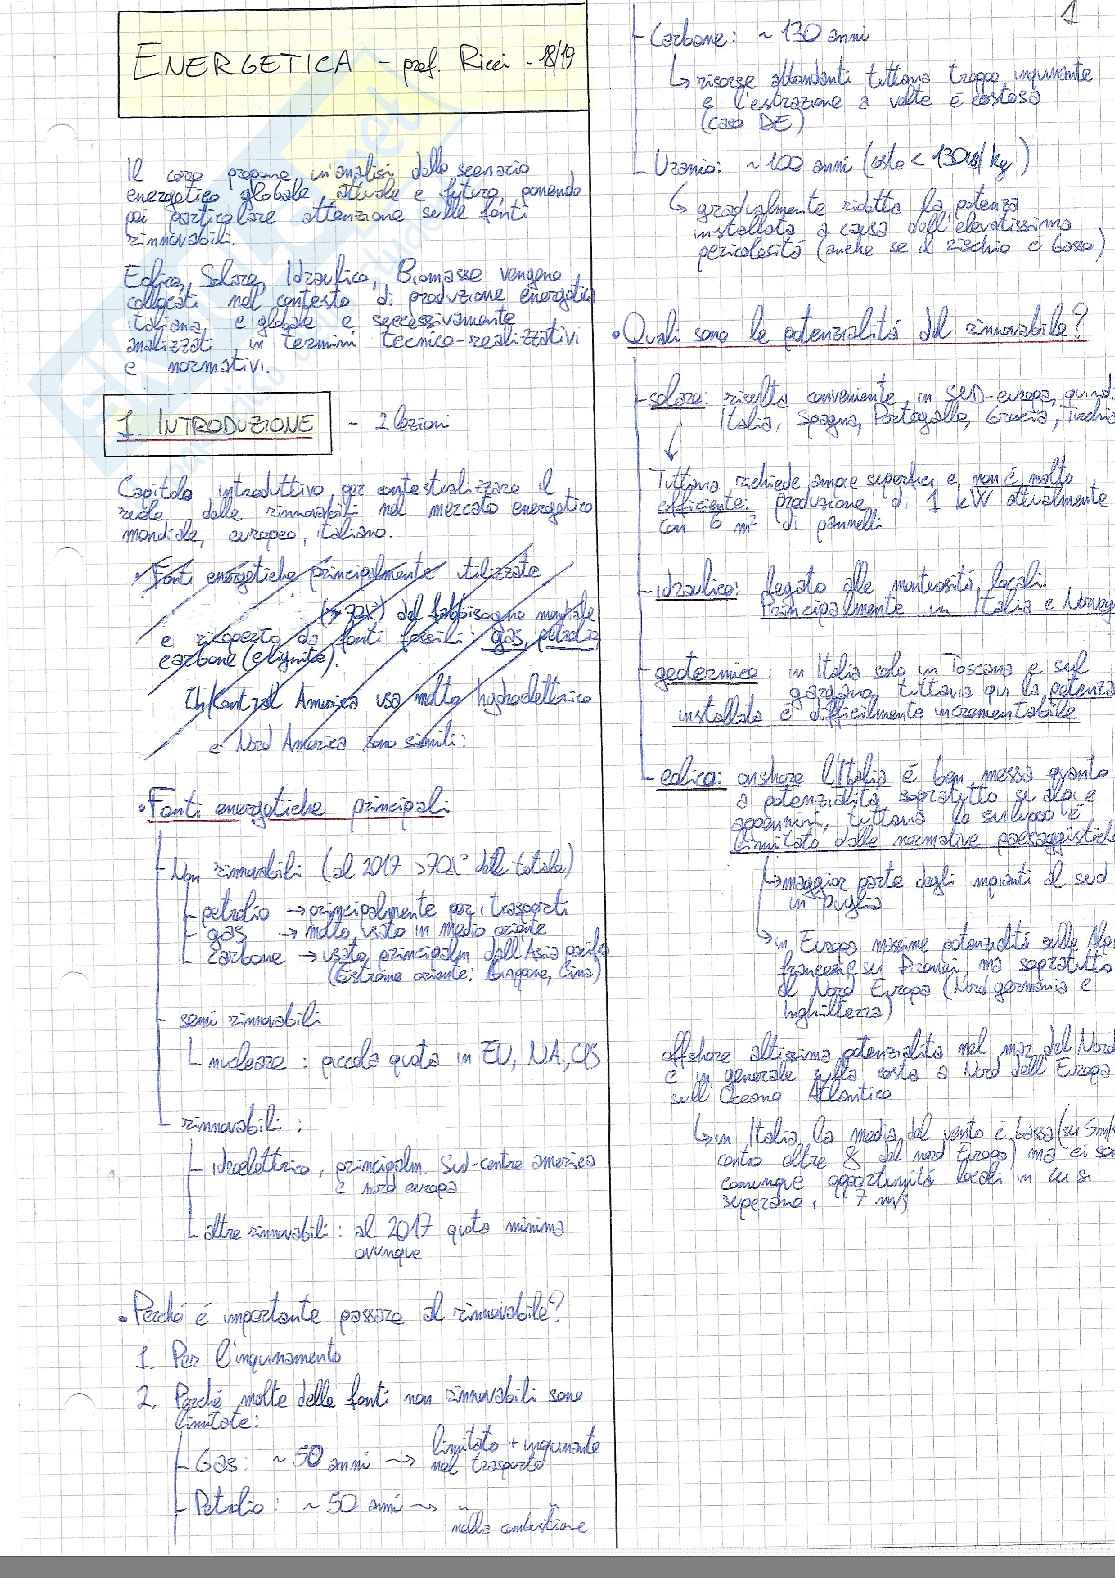 ENERGETICA - prof. Ricci - 18/19
Il corso propone un'analisi dello scenario
energetico globale attuale e futuro, ponendo
poi particolare attenzione sulle fonti
rinnovabili.
Eolica, Solare, Idraulica, Biomasse vengono
collocati nel contesto di produzione energetica
italiana e globale e successivamente
analizzati in termini tecnico-realizzativi
e normativi.
1. INTRODUZIONE - 2 lezioni
Capitolo introduttivo per contestualizzare il
ruolo delle rinnovabili nel mercato energetico
mondiale, europeo, italiano.
• Fonti energetiche principalmente utilizzate
del fabbisogno mondiale
e ricoperto da fonti fossili: gas, petrolio
carbone (e lignite).
America usa molto hydroelettrico
e Nord America sono simili:
• Fonti energetiche principali
Non rinnovabili (al 2017 >70% del totale)
petrolio → principalmente per i trasporti
gas → molto usato in medio oriente
carbone → usato principalm dall'Asia pacifica
(Estremo oriente: Cina)
semi rinnovabili
nucleare : piccola quota in EU, NA, CIS
rinnovabili :
idroelettrico, principalm. Sud-centro america
e nord europa
altre rinnovabili : al 2017 quota minima
ovunque
• Perché é importante passare al rinnovabile?
1. Per l'inquinamento
2. Perché molte delle fonti non rinnovabili sono
limitate:
Gas: ~ 50 anni → limitato + inquinante
nel trasporto
Petrolio : ~ 50 anni → " "
nella combustione
1
Carbone: ~ 130 anni
↳ risorse abbondanti tuttavia troppo inquinante
e l'estrazione a volte é costosa
(caso DE)
Uranio: ~ 100 anni (costo < 130 usd/kg)
↳ gradualmente ridotta la potenza
installata a causa dell'elevatissima
pericolosità (anche se il rischio é basso)
• Quali sono le potenzialità del rinnovabile?
solare: risulta conveniente in SUD-europa, quindi
Italia, Spagna, Portogallo, Grecia, Turchia
↓
Tuttavia richiede ampie superfici e non é molto
efficiente: produzione di 1 kW attualmente
con 6 m² di pannelli
idraulico: legato alle montuosità locali.
Principalmente in Italia e Norvegia
geotermico: in Italia solo in Toscana e sul
gargano, tuttavia qui la potenza
installata é difficilmente incrementabile
eolico: onshore l'Italia é ben messa quanto
a potenzialità sopratutto su alpi e
appennini, tuttavia lo sviluppo é
limitato dalle normative paesaggistiche
↳ maggior parte degli impianti al sud
in Puglia
↳ in Europa massime potenzialità sulle Alpi
francesi e sui Pirenei, ma sopratutto
al Nord Europa (Nord germania e
Inghilterra)
offshore altissima potenzialità nel mar del Nord
e in generale sulla costa a Nord dell'Europa
sull'Oceano Atlantico
↳ in Italia la media del vento é bassa (sui 5m/s
contro oltre 8 del nord Europa) ma ci sono
comunque opportunità locali in cui si
superano i 7 m/s